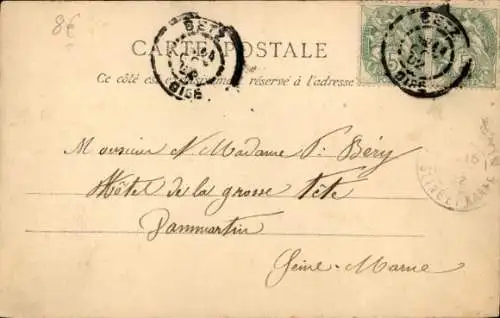 8€
BETZ
OISE
BETZ
OISE
CARTE POSTALE
Ce côté est exclusivement réservé à l'adresse
Monsieur & Madame P. Béry
Hôtel de la grosse Tête
Dammartin
Seine-Marne
SEINE ET MARNE